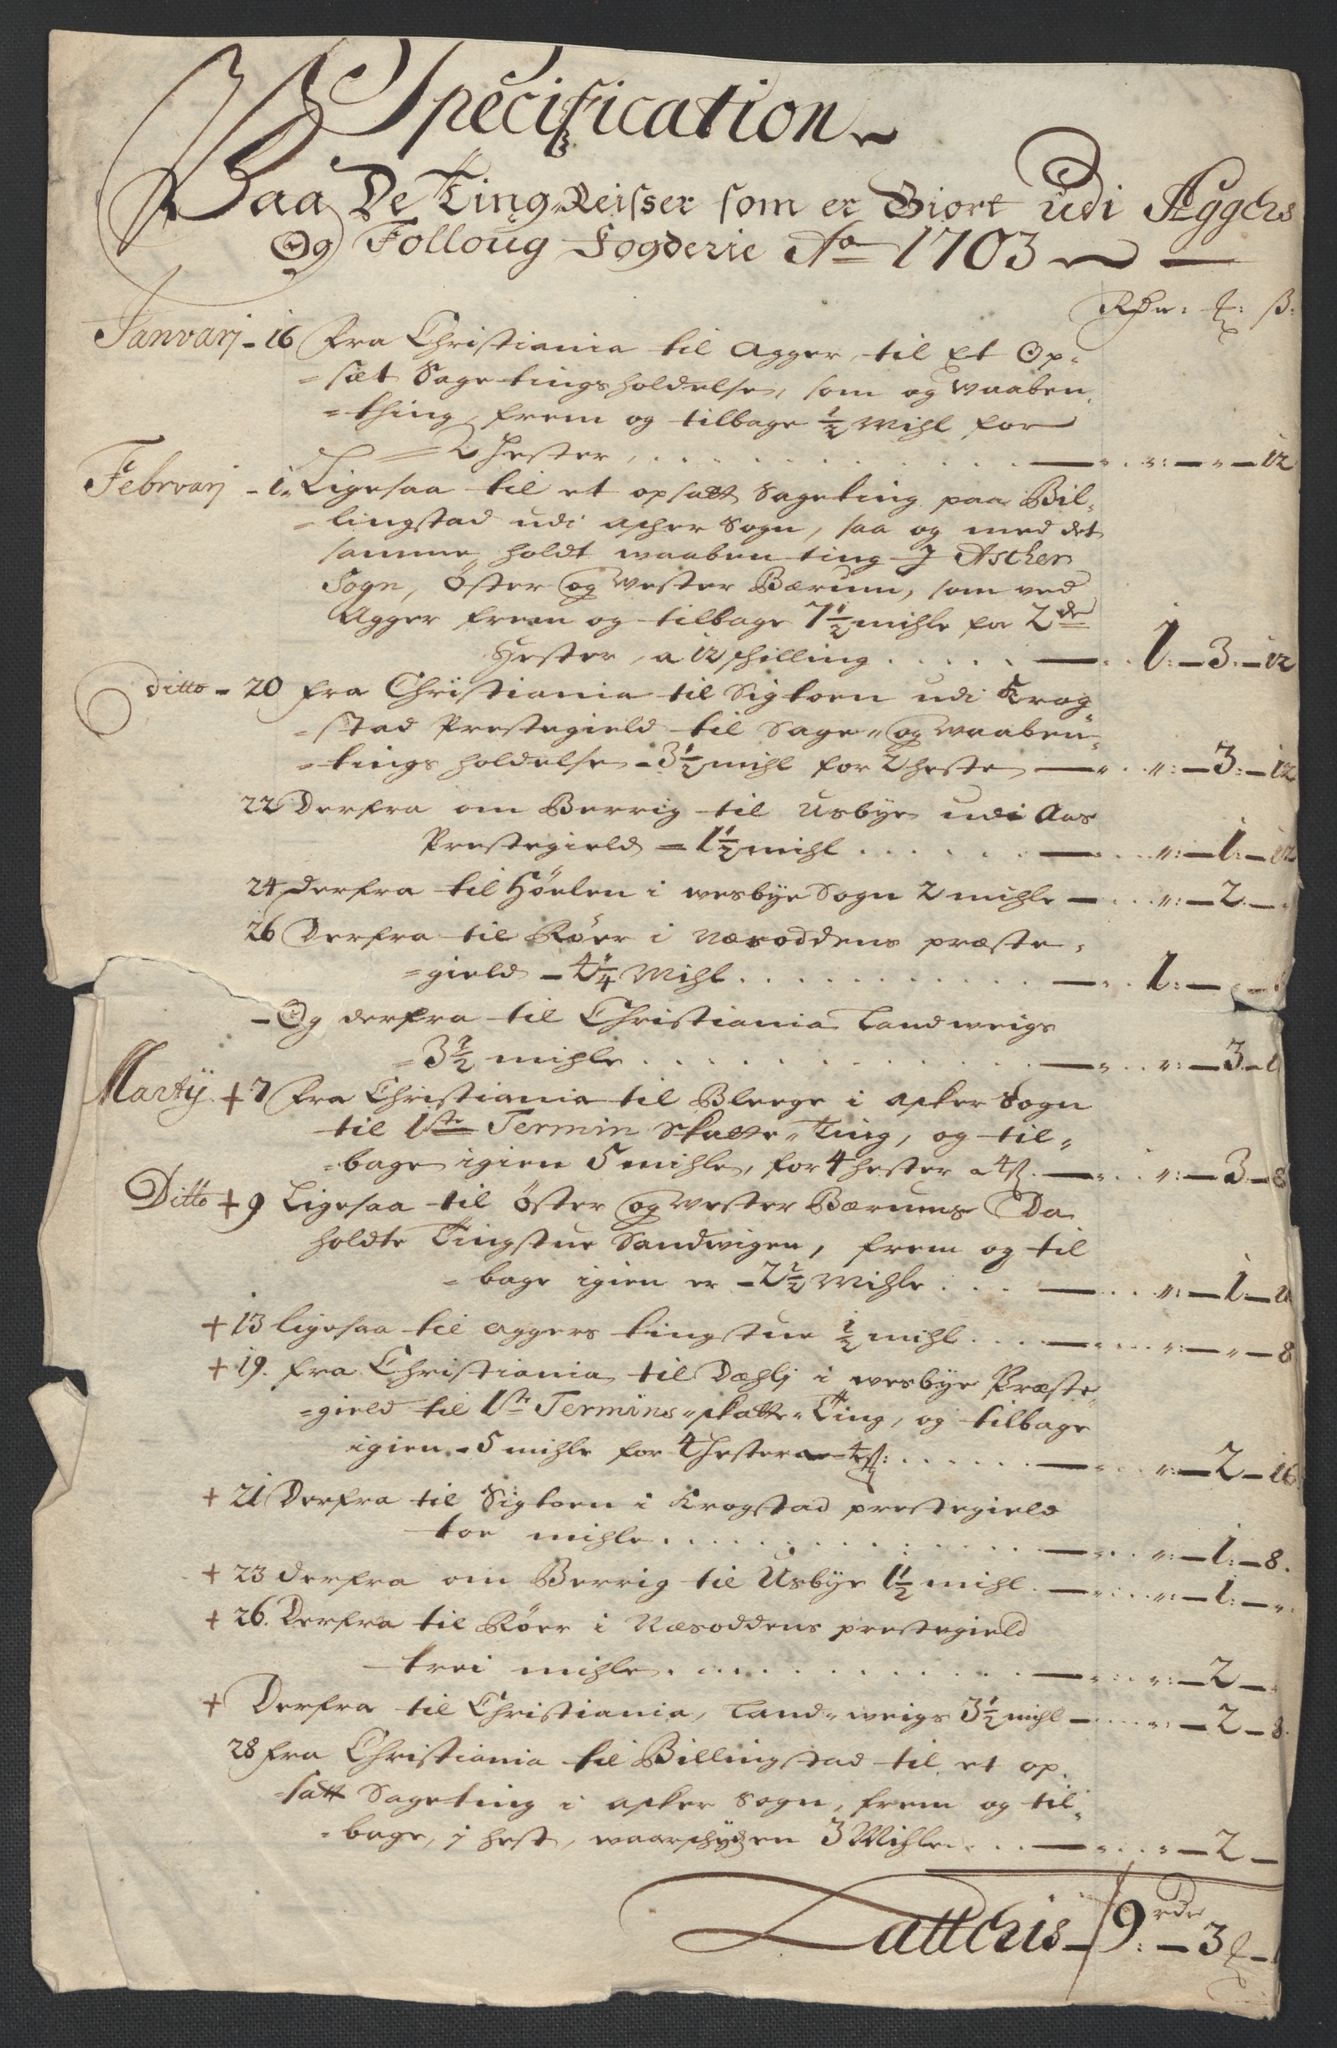 Specification
Paa De Ting Reisser som er Giort udi Aggers
Og Folloug Fogderie Ao 1703
Rdr: β:
Janvarj - 16 Fra Christiania til Agger, til Et Op-
=sæt Sagetings holdelse, som og Waaben-
=thing, frem og tilbage 1/2 Mihl for
2 Hester, . . . . 12
Februarj - 1. Ligesaa til et opsatt Sageting paa Bil-
=lingstad udi Asker Sogn, saa og med det
samme, holdt waabenting J Ascher
Sogn, Öster og Wester Bærum, som ved
Agger frem og tilbage 7 1/2 mihle for 2de
Hester, a 12 schilling . . . . 1:-3:-12
Ditto - 20 fra Christiania til Sigtoen udi Krog-
=stad Prestegield til Sage- og waaben-
=tings holdelse - 3 1/2 mihl for 2 heste ":-3:-12
22 Derfra om Berrig til Usbye udi Aas
Prestegield = 1 1/2 mihl . . . . ":-1:-12
24 derfra til Höelen i wesbye Sogn 2 mihle ":-2.-
26 Derfra til Röer i Næsoddens præste-
=gield - 4 1/4 Mihl . . . . 1:-
- Og derfra til Christiania Landweigs
=3 1/2 mihle . . . . ":-3-
Martij + 7 Fra Christiania til Bleege i Asker Sogn
til 1ste Termin Skatte-Ting, og til-
=bage igien 5 mihle, for 4 hester a 4β. ":-3-8
Ditto + 9 Ligesaa til Öster og Wester Bærums Da
holdte Tingstue Sandwigen, frem og til
=bage igien er - 2 1/2 Mihle . . . ":-1:-
+ 13 ligesaa til Aggers tingstue 1/2 mihl . . . ":-"-8
+ 19. fra Christiania til Dæhlj i wesbye Præste-
=gield til 1ste Termins skatte-Ting, og tilbage
igien - 5 mihle for 4 Hester a 4β: . . . . ":-2-16
+ 21 Derfra til Sigtoen i Krogstad prestegield
toe mihle . . . . ":-1:-8.
+ 23 derfra om Berrig til Usbye 1 1/2 mihl. ":-1:-".
+ 26. Derfra til Röer i Næsoddens prestegield
trei mihle . . . . ":-2-".
+ Derfra til Christiania, Land-weigs 3 1/2 mihl ":-2-8.
28 fra Christiania til Billingstad til et op-
=satt Sageting i Asker Sogn, frem og til-
=bage, 1 hest, 3 Mihle . . . "-2-
Latteris - 9 rdr:-3